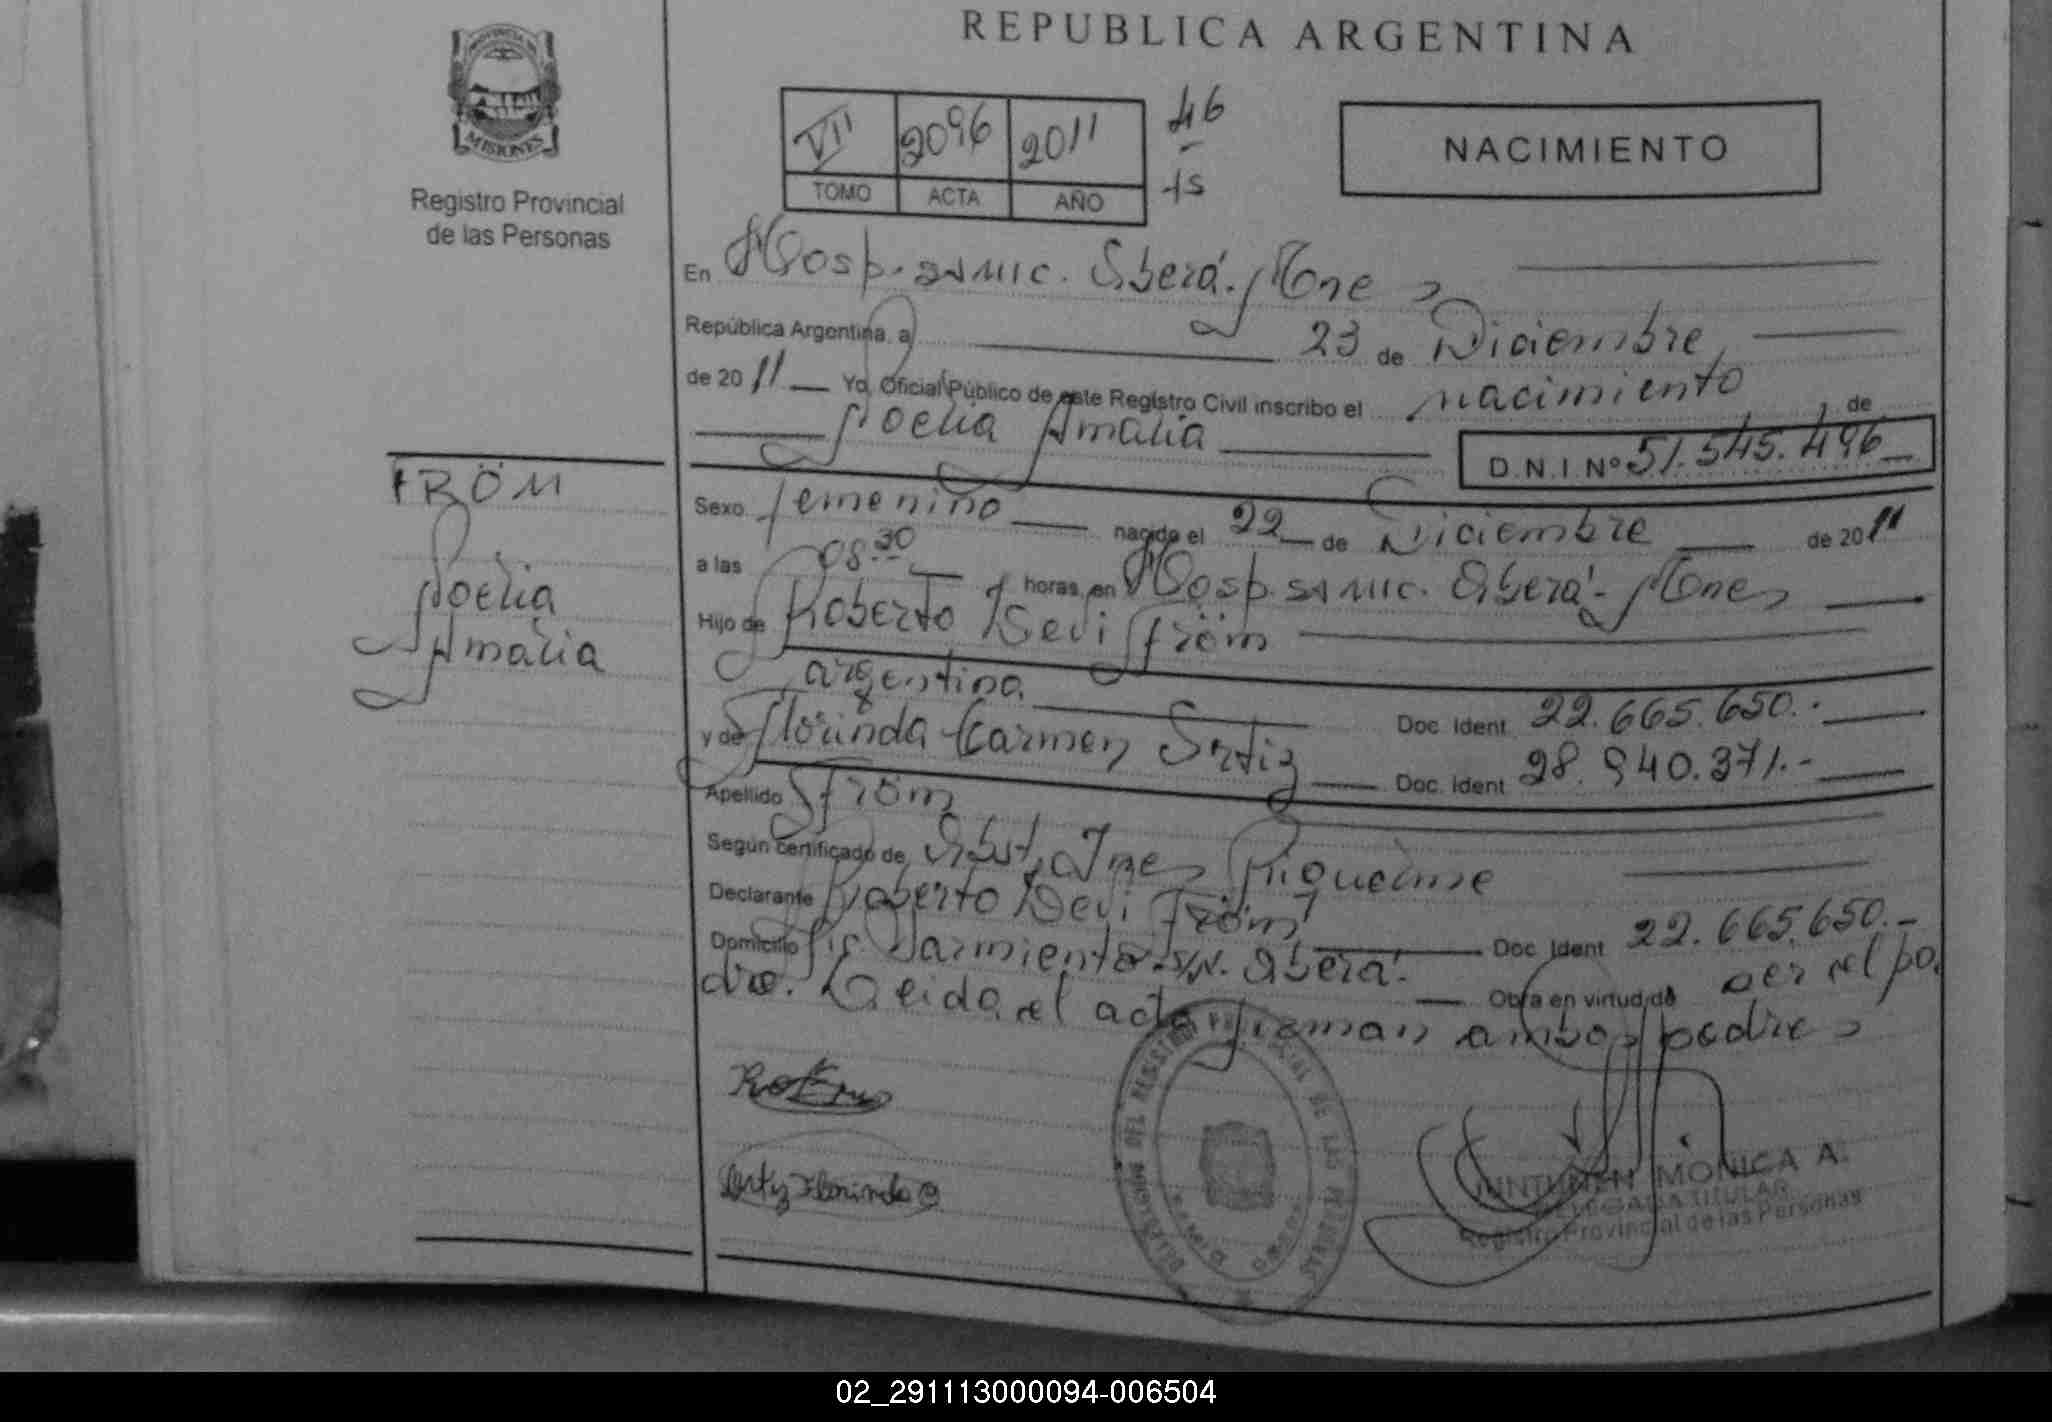 REPUBLICA ARGENTINA
PROVINCIA DE
MISIONES
Registro Provincial
de las Personas
VII 2096 2011
TOMO ACTA AÑO
46
15
NACIMIENTO
En Hosp. SAMIC. Oberá. Mnes
República Argentina, a 23 de Diciembre
de 2011 Yo, Oficial Público de este Registro Civil inscribo el nacimiento
de
Noelia Amalia
D.N.I Nº 51.545.496
FRÖM
Noelia
Amalia
Sexo femenino nacido el 22 de Diciembre de 2011
a las 08.30 horas, en Hosp. SAMIC. Oberá. Mnes
Hijo de Roberto Devi Fröm
argentina Doc. Ident 22.665.650.-
y de Florinda Carmen Ortiz Doc. Ident 28.940.371.-
Apellido Fröm
Según certificado de Obst. Ines Riquelme
Declarante Roberto Devi Fröm Doc. Ident 22.665.650.-
Domicilio Sarmiento S/N. Oberá. Obra en virtud de ser el pa
dre. Leida el acta firman ambos padres
Ortiz Florinda C
MONICA A.
DELEGADA TITULAR
Registro Provincial de las Personas
02_291113000094-006504